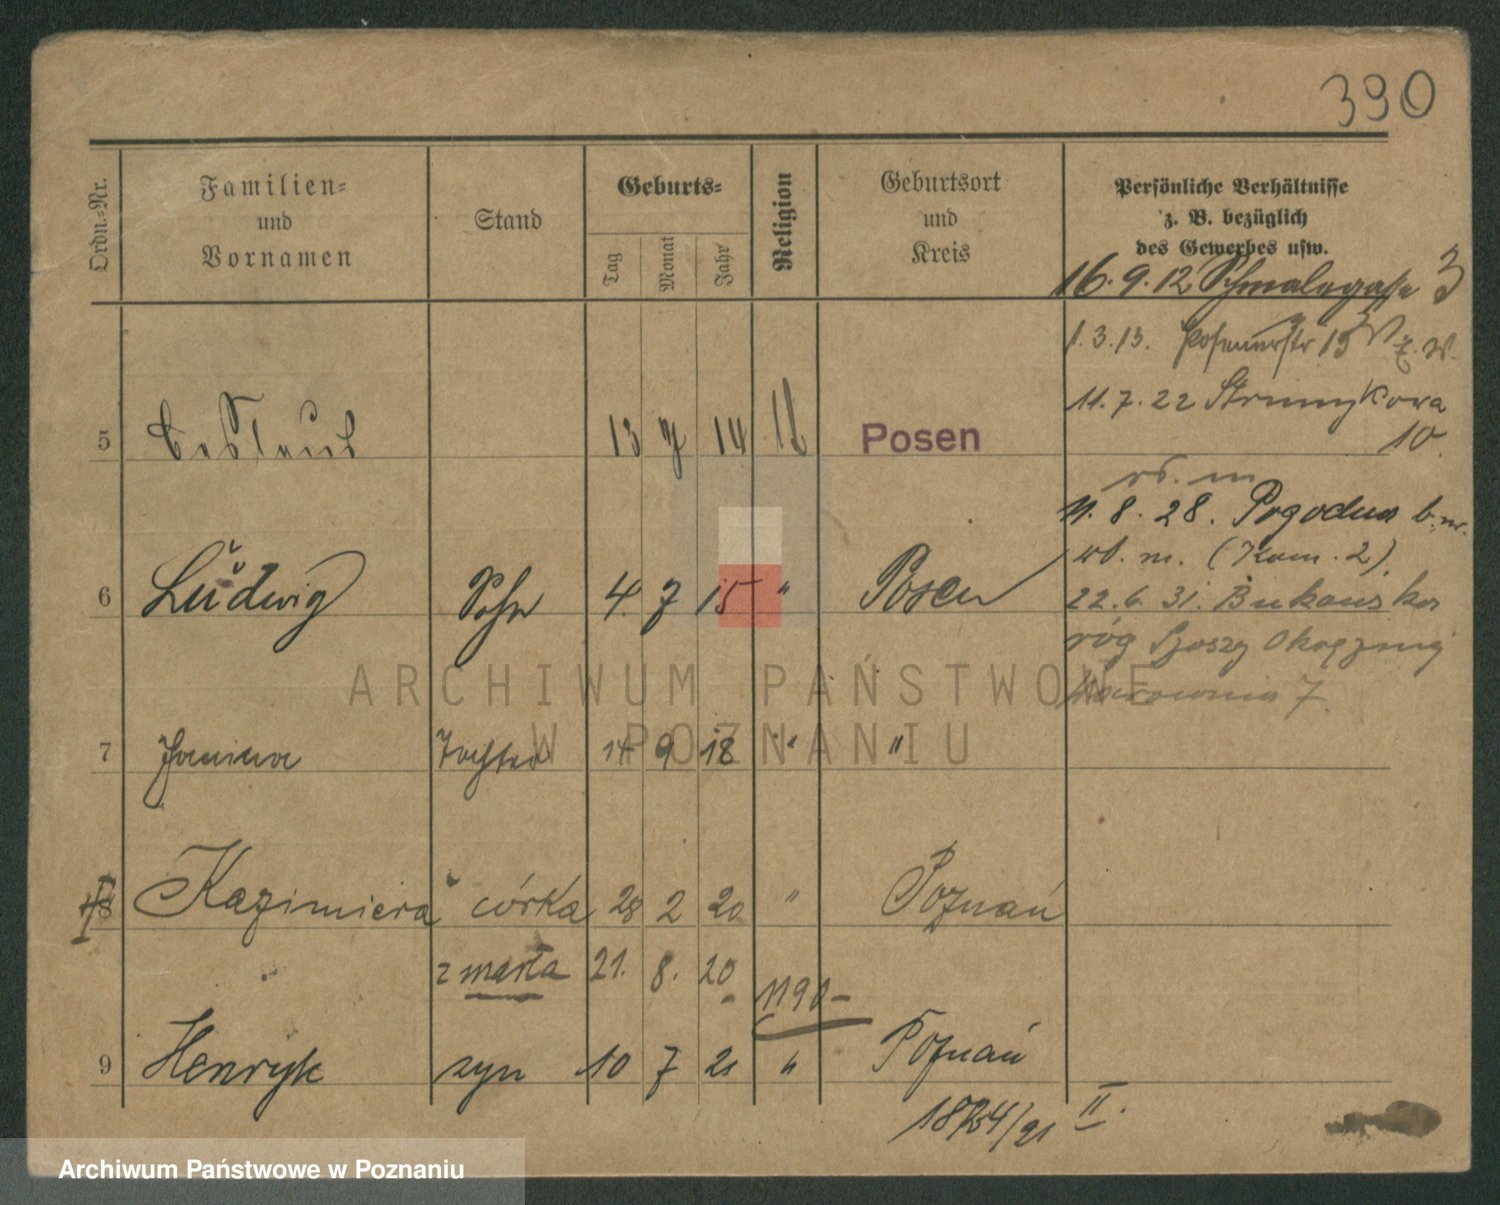 390
Ordn.-Nr.
Familien-
und
Vornamen
Stand
Geburts-
Tag
Monat
Jahr
Religion
Geburtsort
und
Kreis
Persönliche Verhältnisse
z. B. bezüglich
des Gewerbes usw.
16.9.12 Schmalegasse 3
1.3.13. 15
11.7.22 Strumykowa
10.
5 13 7 14 Posen
11.8.28. Pogodna b. nr.
wł. m. (Kom. 2)
6 Ludwig Sohn 4. 7 15 " Posen
22.6.31. Bukowska
róg Szosy Okrężnej
7
7 Janina Tochter 14 9 18 " "
8 Kazimiera córka 28 2 20 " Poznań
zmarła 21. 8. 20
1190-
9 Henryk syn 10 7 21 " Poznań
II.
ARCHIWUM PAŃSTWOWE
W POZNANIU
Archiwum Państwowe w Poznaniu